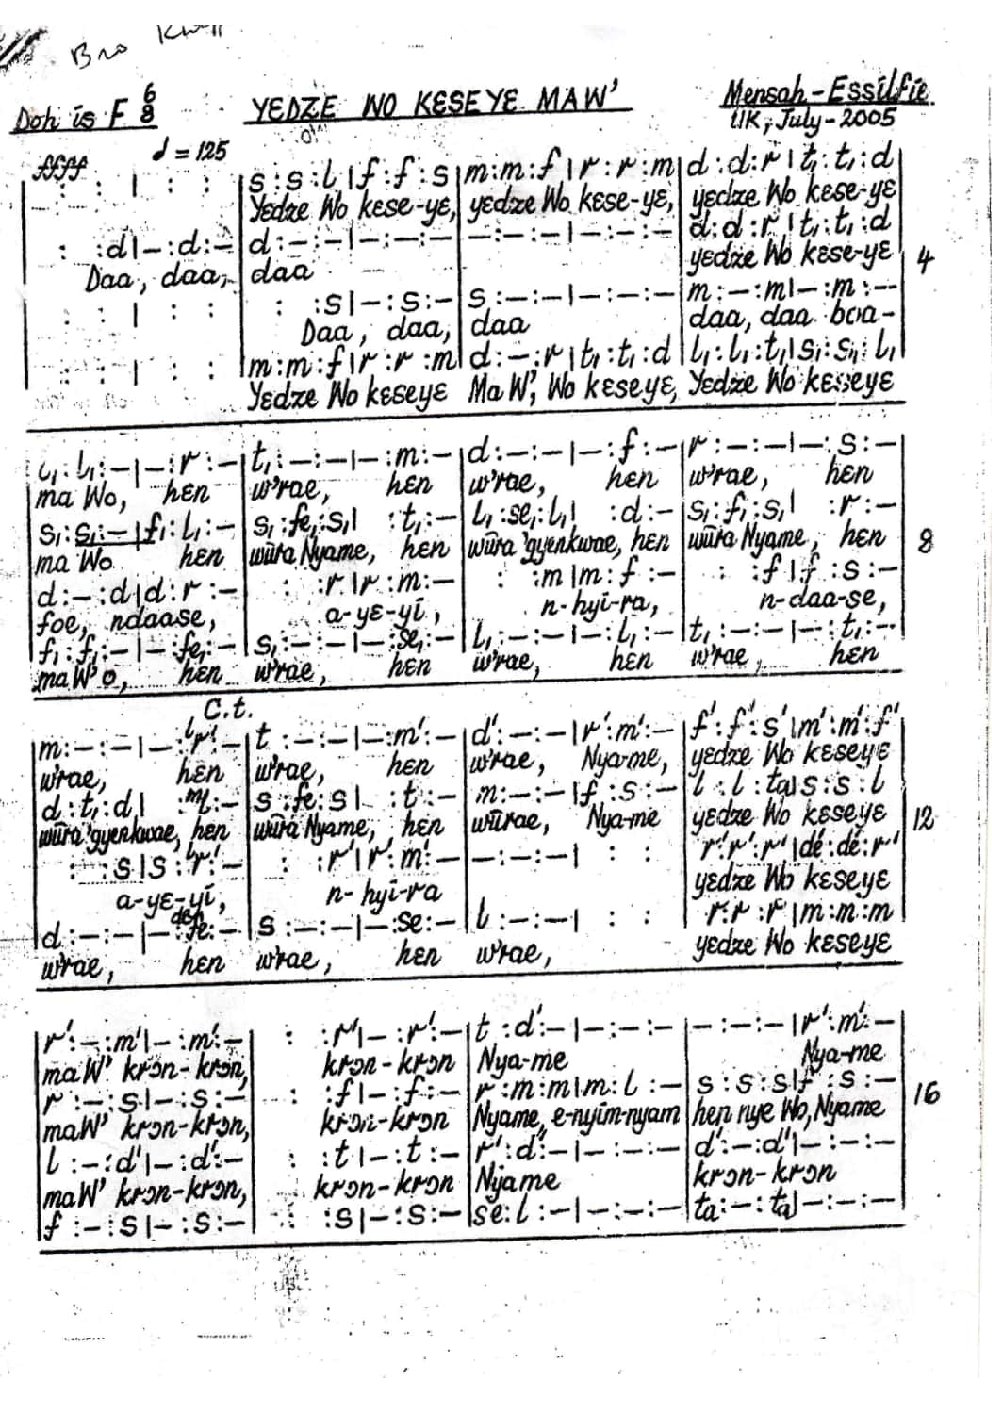 Bro
Doh is F 6/8 YƐDZE WO KƐSEYƐ MAW' Mensah-Essilfie
UK, July-2005
ffff ♩ = 125
: : | : : | s :s :l |f :f :s | m:m:f |r :r :m | d :d :r |t,:t,:d
Yɛdze Wo kɛse-yɛ, yɛdze Wo kɛse-yɛ, yɛdze Wo kɛse-yɛ
: :d|– :d:– | d:–:–|–:–:– | –:–:–|–:–:– | d:d:r |t,:t,:d
Daa, daa, daa yɛdze Wo kɛse-yɛ 4
: : | : : | : :s|–:s:– | s:–:–|–:–:– | m:–:m|–:m:–
Daa, daa, daa daa, daa boa-
: : | : : | m:m:f|r :r :m | d:–:r|t,:t,:d | l,:l,:t,|s,:s,:l,
Yɛdze Wo kɛseyɛ Ma W', Wo kɛseyɛ, Yɛdze Wo kɛseyɛ
l,:l,:–|–:r:– | t,:–:–|–:m:– | d:–:–|–:f:– | r:–:–|–:s:–
ma Wo, hɛn w'rae, hɛn w'rae, hɛn w'rae, hɛn
s,:s,:–|f,:l,:– | s,:fe,:s,| :t,:– | l,:se,:l,| :d:– | s,:f,:s,| :r:–
ma Wo hɛn wūra Nyame, hɛn wūra 'gyenkwae, hɛn wūra Nyame, hɛn 8
d:–:d|d:r:– | : :r|r:m:– | : :m|m:f:– | : :f|f:s:–
foe, ndaase, a-yɛ-yi, n-hyi-ra, n-daa-se,
f,:f,:–|–:fe,:– | s,:–:–|–:se,:– | l,:–:–|–:l,:– | t,:–:–|–:t,:–
ma W'o, hɛn w'rae, hɛn w'rae, hɛn w'rae, hɛn
C.t.
m:–:–|–:r':– | t:–:–|–:m':– | d':–:–|r':m':– | f':f':s'|m':m':f'
w'rae, hɛn w'rae, hɛn w'rae, Nya-me, yɛdze Wo kɛseyɛ
d:t,:d| :l:– | s:fe:s| :t:– | m:–:–|f:s:– | l:l:ta|s:s:l
wūra 'gyenkwae, hɛn wūra Nyame, hɛn wūrae, Nya-me yɛdze Wo kɛseyɛ 12
: :s|s:r':– | : :r'|r':m':– | –:–:–| : : | r':r':r'|de':de':r'
a-yɛ-yi, n-hyi-ra yɛdze Wo kɛseyɛ
d:–:–|–:fe:– | s:–:–|–:se:– | l:–:–| : : | r:r:r|m:m:m
w'rae, hɛn w'rae, hɛn w'rae, yɛdze Wo kɛseyɛ
r':–:m'|–:m':– | : :r'|–:r':– | t:d':–|–:–:– | –:–:–|r':m':–
maW' krɔn-krɔn, krɔn-krɔn Nya-me Nya-me
r:–:s|–:s:– | : :f|–:f:– | r:m:m|m:l:– | s:s:s|f:s:–
maW' krɔn-krɔn, krɔn-krɔn Nyame, e-nyim-nyam hɛn nye Wo, Nyame 16
l:–:d'|–:d':– | : :t|–:t:– | r':d':–|–:–:– | d':–:d'|–:–:–
maW' krɔn-krɔn, krɔn-krɔn Nyame krɔn-krɔn
f:–:s|–:s:– | : :s|–:s:– | se:l:–|–:–:– | ta:–:ta|–:–:–